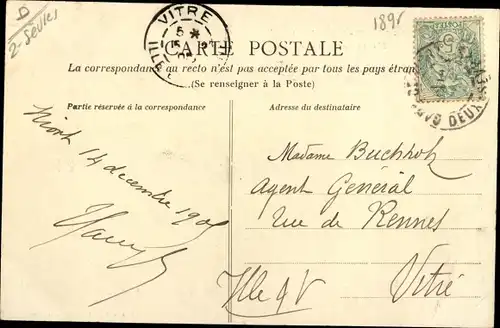 D
2-Sèvres
VITRE
189
CARTE POSTALE
La correspondance au recto n'est pas acceptée par tous les pays étran
(Se renseigner à la Poste)
Partie réservée à la correspondance
Adresse du destinataire
Niort
14 decembre 190
Madame
Agent Général
rue de Rennes
Vitré
Ille & V
GARE DEUX